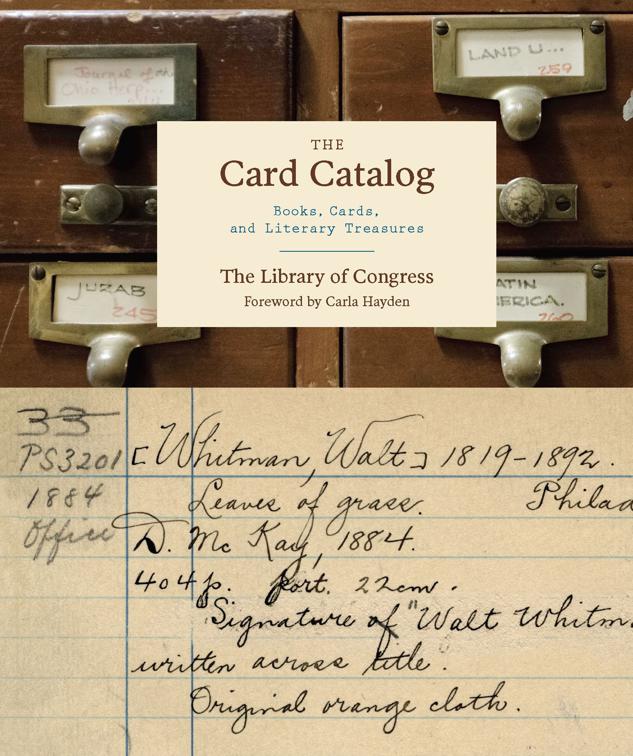 Journal of the
Ohio Herp...
LAND U...
259
THE
Card Catalog
Books, Cards,
and Literary Treasures
The Library of Congress
Foreword by Carla Hayden
JURAB
245
ATIN
ERICA.
260
33
PS3201
1884
Office
[Whitman, Walt] 1819-1892.
Leaves of grass. Philad
D. Mc Kay, 1884.
404p. port. 22cm.
Signature of "Walt Whitm
written across title.
Original orange cloth.